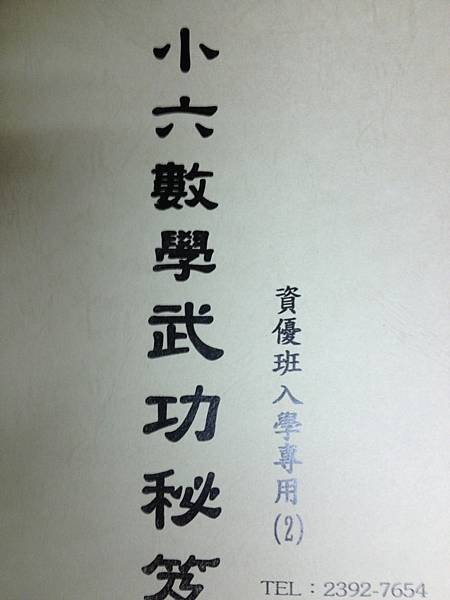 小六數學武功秘笈
資優班入學專用(2)
TEL：2392-7654